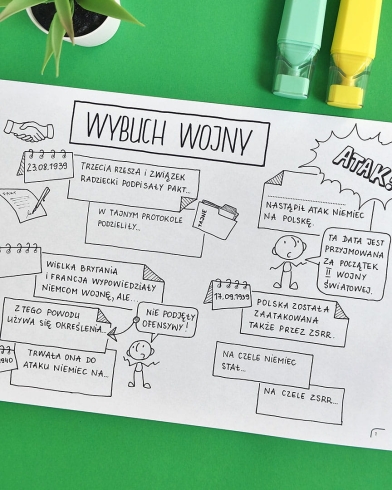 WYBUCH WOJNY
23.08.1939
TRZECIA RZESZA I ZWIĄZEK
RADZIECKI PODPISAŁY PAKT...
W TAJNYM PROTOKOLE
PODZIELIŁY...
TAJNE
WIELKA BRYTANIA
I FRANCJA WYPOWIEDZIAŁY
NIEMCOM WOJNĘ, ALE...
Z TEGO POWODU
UŻYWA SIĘ OKREŚLENIA...
NIE PODJĘŁY
OFENSYWNY!
1940
TRWAŁA ONA DO
ATAKU NIEMIEC NA...
ATAK
NASTĄPIŁ ATAK NIEMIEC
NA POLSKĘ.
TA DATA JEST
PRZYJMOWANA
ZA POCZĄTEK
II WOJNY
ŚWIATOWEJ.
17.09.1939
POLSKA ZOSTAŁA
ZAATAKOWANA
TAKŻE PRZEZ ZSRR.
NA CZELE NIEMIEC
STAŁ...
NA CZELE ZSRR...